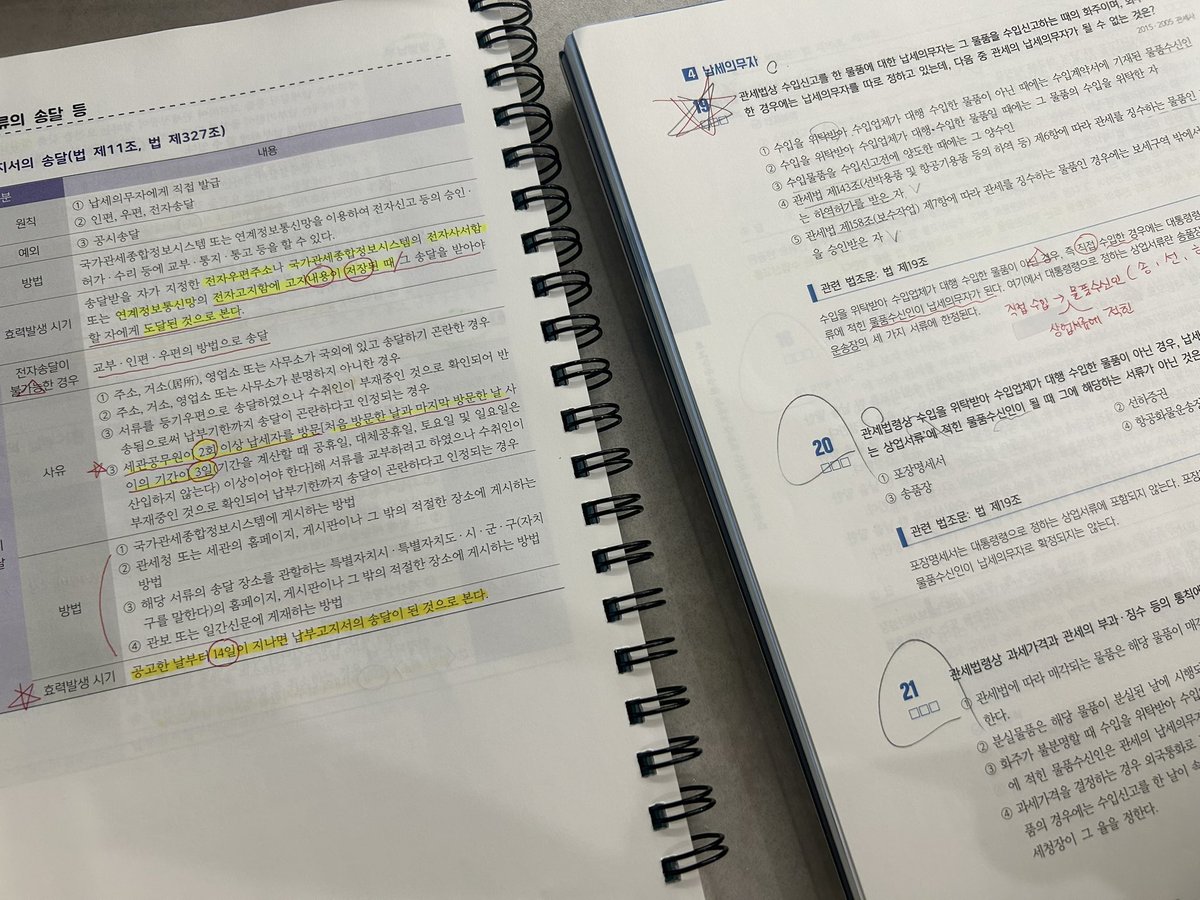 류의 송달 등
지서의 송달(법 제11조, 법 제327조)
분
내용
원칙
① 납세의무자에게 직접 발급
② 인편, 우편, 전자송달
예외
③ 공시송달
방법
국가관세종합정보시스템 또는 연계정보통신망을 이용하여 전자신고 등의 승인·
허가·수리 등에 교부·통지·통고 등을 할 수 있다.
효력발생 시기
송달받을 자가 지정한 전자우편주소나 국가관세종합정보시스템의 전자사서함
또는 연계정보통신망의 전자고지함에 고지내용이 저장된 때 그 송달을 받아야
할 자에게 도달된 것으로 본다.
전자송달이
불가능한 경우
교부·인편·우편의 방법으로 송달
사유
① 주소, 거소(居所), 영업소 또는 사무소가 국외에 있고 송달하기 곤란한 경우
② 주소, 거소, 영업소 또는 사무소가 분명하지 아니한 경우
③ 서류를 등기우편으로 송달하였으나 수취인이 부재중인 것으로 확인되어 반
송됨으로써 납부기한까지 송달이 곤란하다고 인정되는 경우
③ 세관공무원이 2회 이상 납세자를 방문[처음 방문한 날과 마지막 방문한 날 사
이의 기간이 3일(기간을 계산할 때 공휴일, 대체공휴일, 토요일 및 일요일은
산입하지 않는다) 이상이어야 한다]해 서류를 교부하려고 하였으나 수취인이
부재중인 것으로 확인되어 납부기한까지 송달이 곤란하다고 인정되는 경우
방법
① 국가관세종합정보시스템에 게시하는 방법
② 관세청 또는 세관의 홈페이지, 게시판이나 그 밖의 적절한 장소에 게시하는
방법
③ 해당 서류의 송달 장소를 관할하는 특별자치시·특별자치도·시·군·구(자치
구를 말한다)의 홈페이지, 게시판이나 그 밖의 적절한 장소에 게시하는 방법
④ 관보 또는 일간신문에 게재하는 방법
효력발생 시기
공고한 날부터 14일이 지나면 납부고지서의 송달이 된 것으로 본다.
4 납세의무자
19
관세법상 수입신고를 한 물품에 대한 납세의무자는 그 물품을 수입신고하는 때의 화주이며, 화주
한 경우에는 납세의무자를 따로 정하고 있는데, 다음 중 관세의 납세의무자가 될 수 없는 것은?
2015·2005 관세사
① 수입을 위탁받아 수입업체가 대행 수입한 물품이 아닌 때에는 수입계약서에 기재된 물품수신인
② 수입을 위탁받아 수입업체가 대행·수입한 물품일 때에는 그 물품의 수입을 위탁한 자
③ 수입물품을 수입신고전에 양도한 때에는 그 양수인
④ 관세법 제143조(선박용품 및 항공기용품 등의 하역 등) 제6항에 따라 관세를 징수하는 물품인
는 하역허가를 받은 자
⑤ 관세법 제158조(보수작업) 제7항에 따라 관세를 징수하는 물품인 경우에는 보세구역 밖에서
을 승인받은 자
관련 법조문: 법 제19조
수입을 위탁받아 수입업체가 대행 수입한 물품이 아닌 경우, 즉 직접 수입한 경우에는 대통령령
으로 정하는 상업서류에 적힌 물품수신인이 납세의무자가 된다. 여기에서 대통령령으로 정하는 상업서류란 송품장
운송장의 세 가지 서류에 한정된다.
직접 수입 → 물품수신인 (송, 선,
상업서류에 적힌
20
관세법령상 수입을 위탁받아 수입업체가 대행 수입한 물품이 아닌 경우, 납세
는 상업서류'에 적힌 물품수신인이 될 때, 그에 해당하는 서류가 아닌 것은
① 포장명세서
② 선하증권
③ 송품장
④ 항공화물운송장
관련 법조문: 법 제19조
포장명세서는 대통령령으로 정하는 상업서류에 포함되지 않는다. 포장
물품수신인이 납세의무자로 확정되지는 않는다.
21
관세법령상 과세가격과 관세의 부과·징수 등의 통칙에
① 관세법에 따라 매각되는 물품은 해당 물품이 매각
한다.
② 분실물품은 해당 물품이 분실된 날에 시행되
③ 화주가 불분명할 때 수입을 위탁받아 수입
에 적힌 물품수신인은 관세의 납세의무자
④ 과세가격을 결정하는 경우 외국통화로
품의 경우에는 수입신고를 한 날이 속
세청장이 그 율을 정한다.